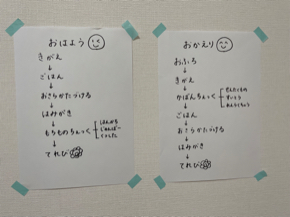 おはよう
きがえ
↓
ごはん
↓
おさらかたづける
↓
はみがき
↓
もちものちぇっく
はんかち
↓
てれび
おかえり
おふろ
↓
きがえ
↓
かばんちぇっく
せんたくもの
すいとう
↓
ごはん
↓
おさらかたづける
↓
はみがき
↓
てれび